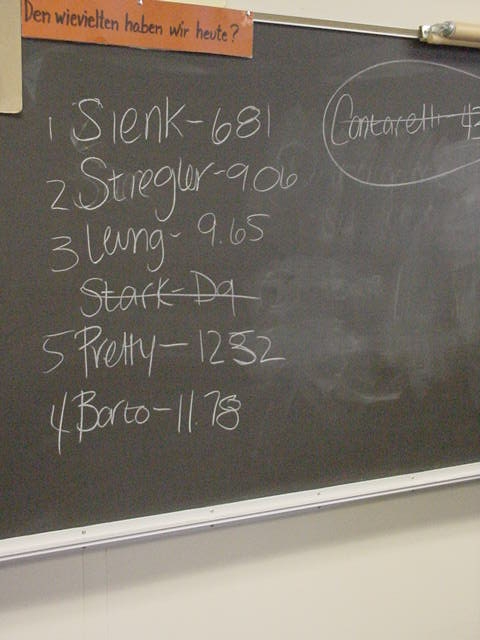 Den wievielten haben wir heute?
1 Sienk-681
2 Striegler-906
3 Leung- 9.65
Stark-Dq
5 Pretty-1252
4 Barto-11.78
Contarelli